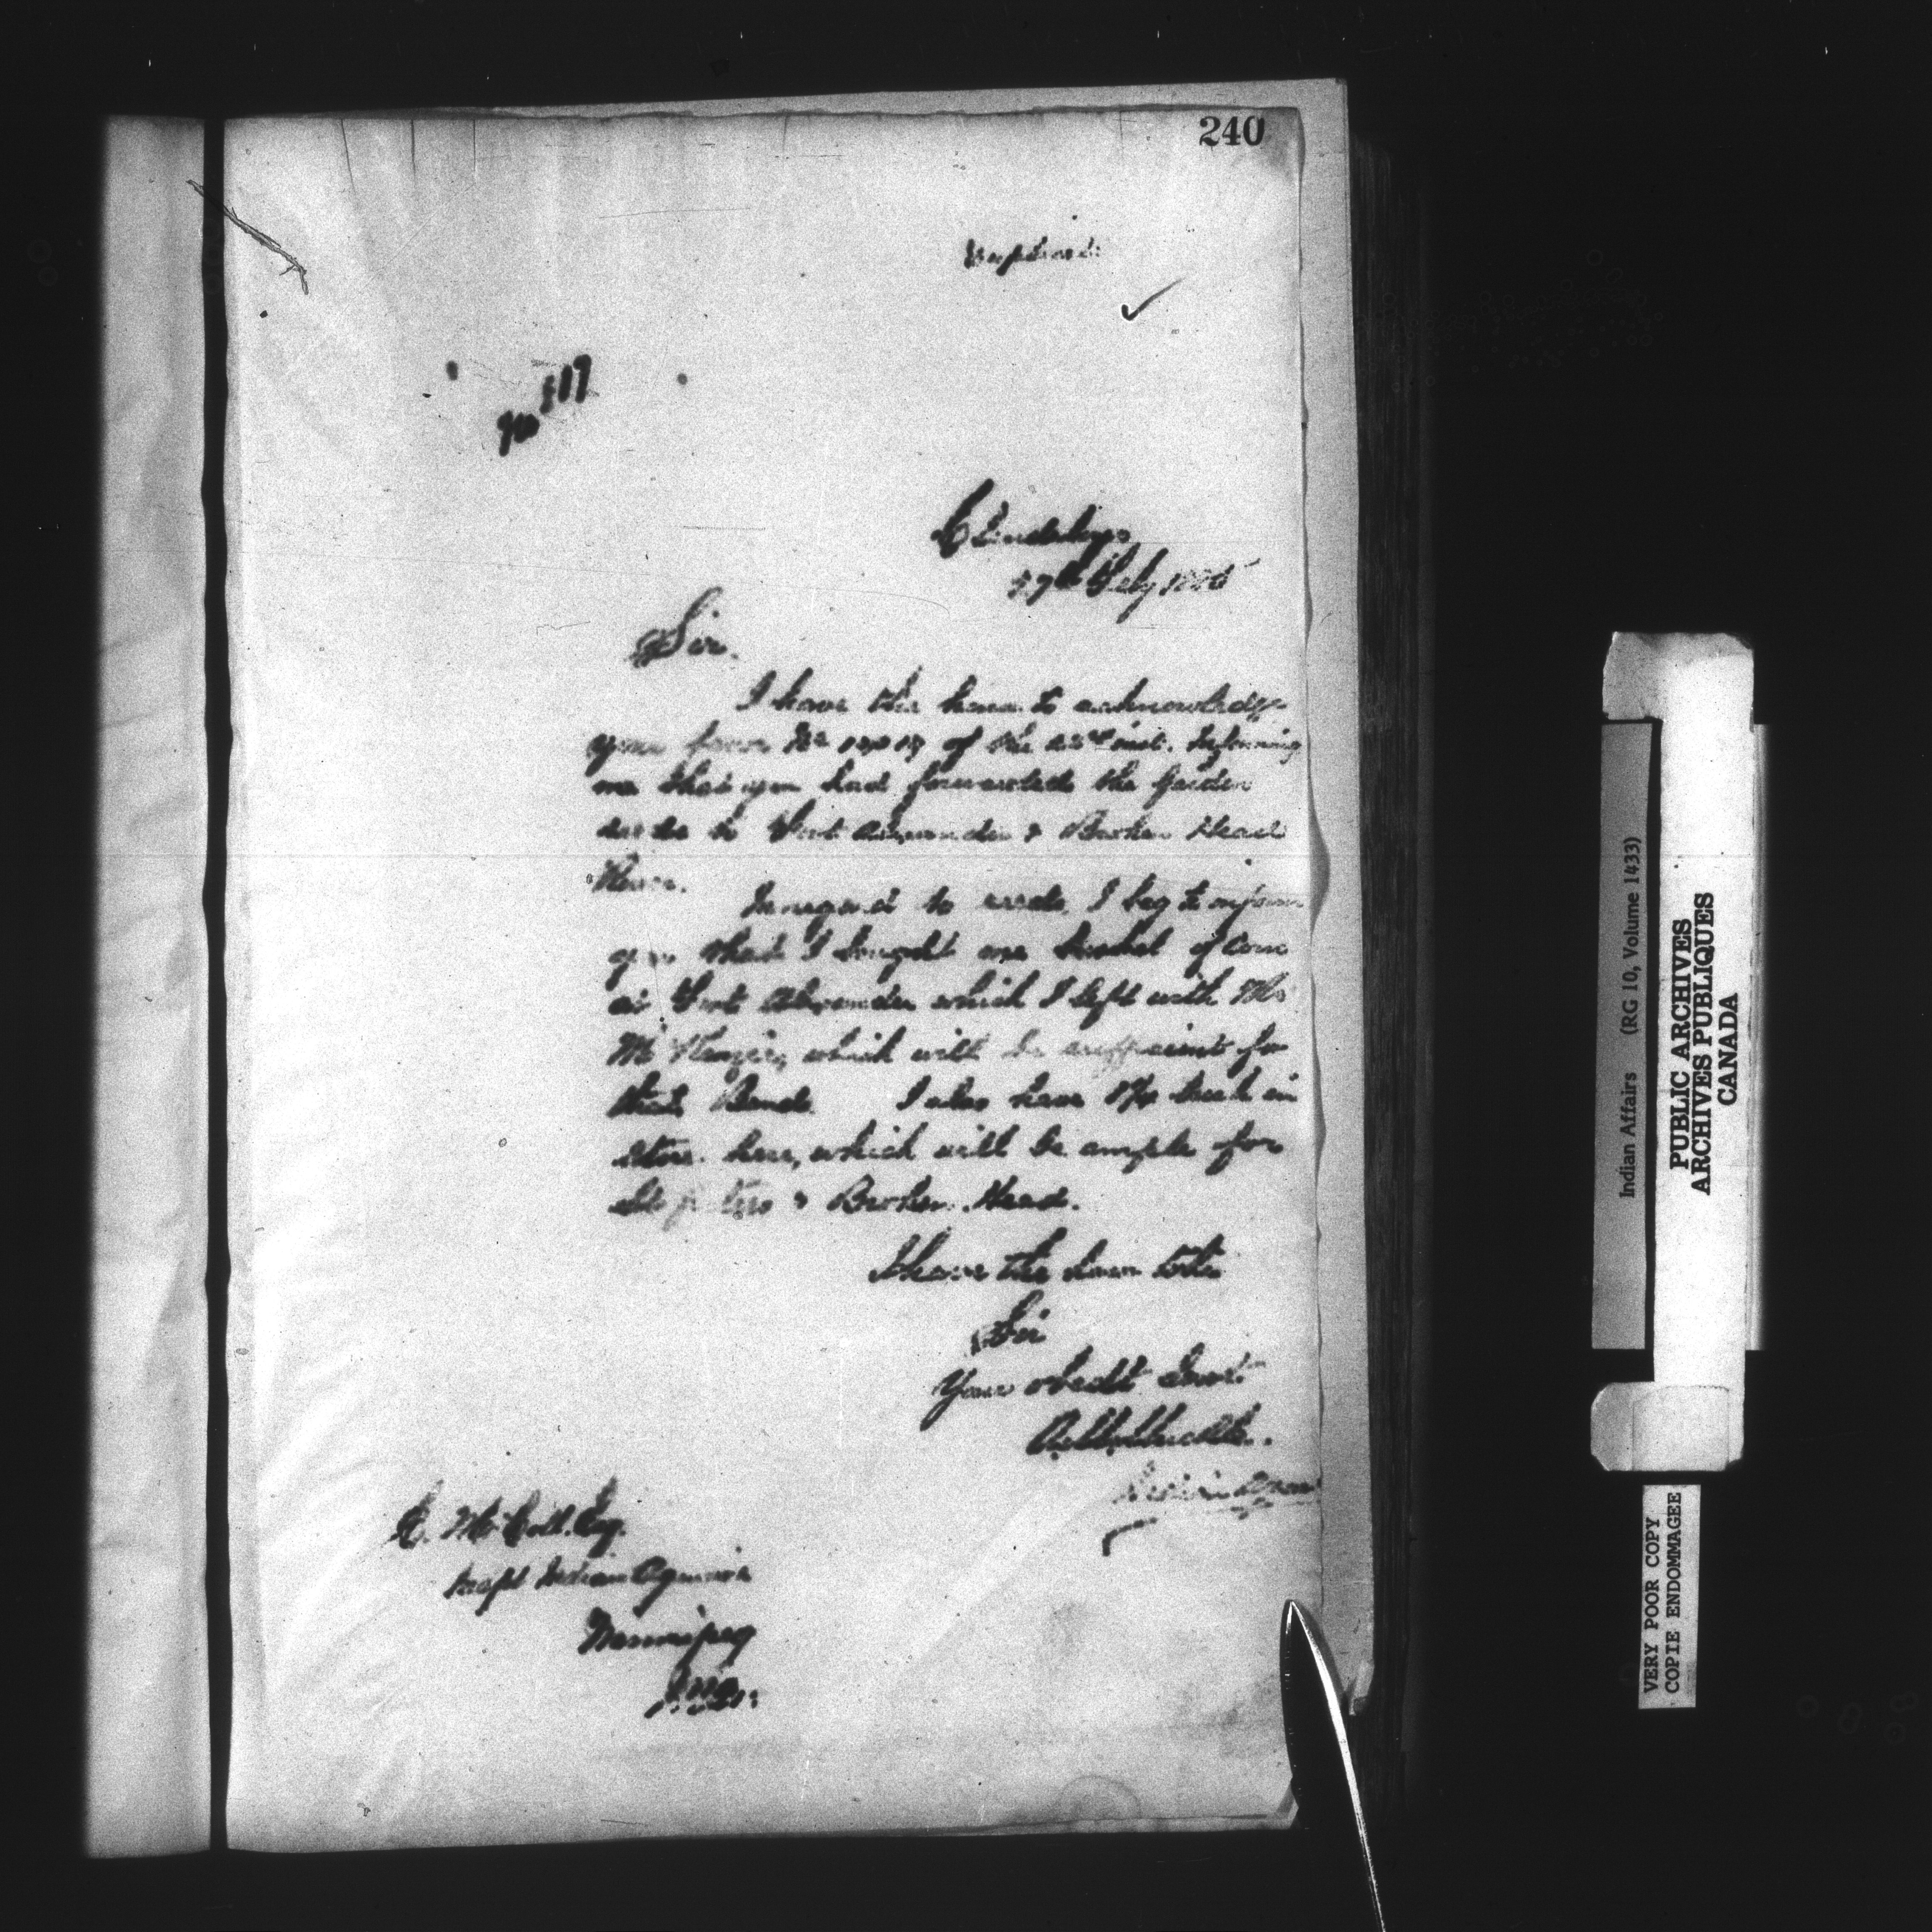 240
Copied
No 117
Clandeboye
Sir.
I have the honor to acknowledge
your favor No of the 22nd inst. Informing
me that you had forwarded the Garden
seeds to Fort Alexander & Broken Head
River.
In regard to seeds, I beg to inform
you that I bought one bushel of Corn
at Fort Alexander which I left with Mr
McKenzie, which will be sufficient for
that Band. I also have bush in
store here, which will be ample for
St Peters & Broken Head.
I have the honor to be
Sir
Your obedt Servt
Indian Agent
E. McColl. Esq.
Inspt Indian Agencies
Winnipeg
Man.
Indian Affairs (RG 10, Volume 1433)
PUBLIC ARCHIVES
ARCHIVES PUBLIQUES
CANADA
VERY POOR COPY
COPIE ENDOMMAGEE